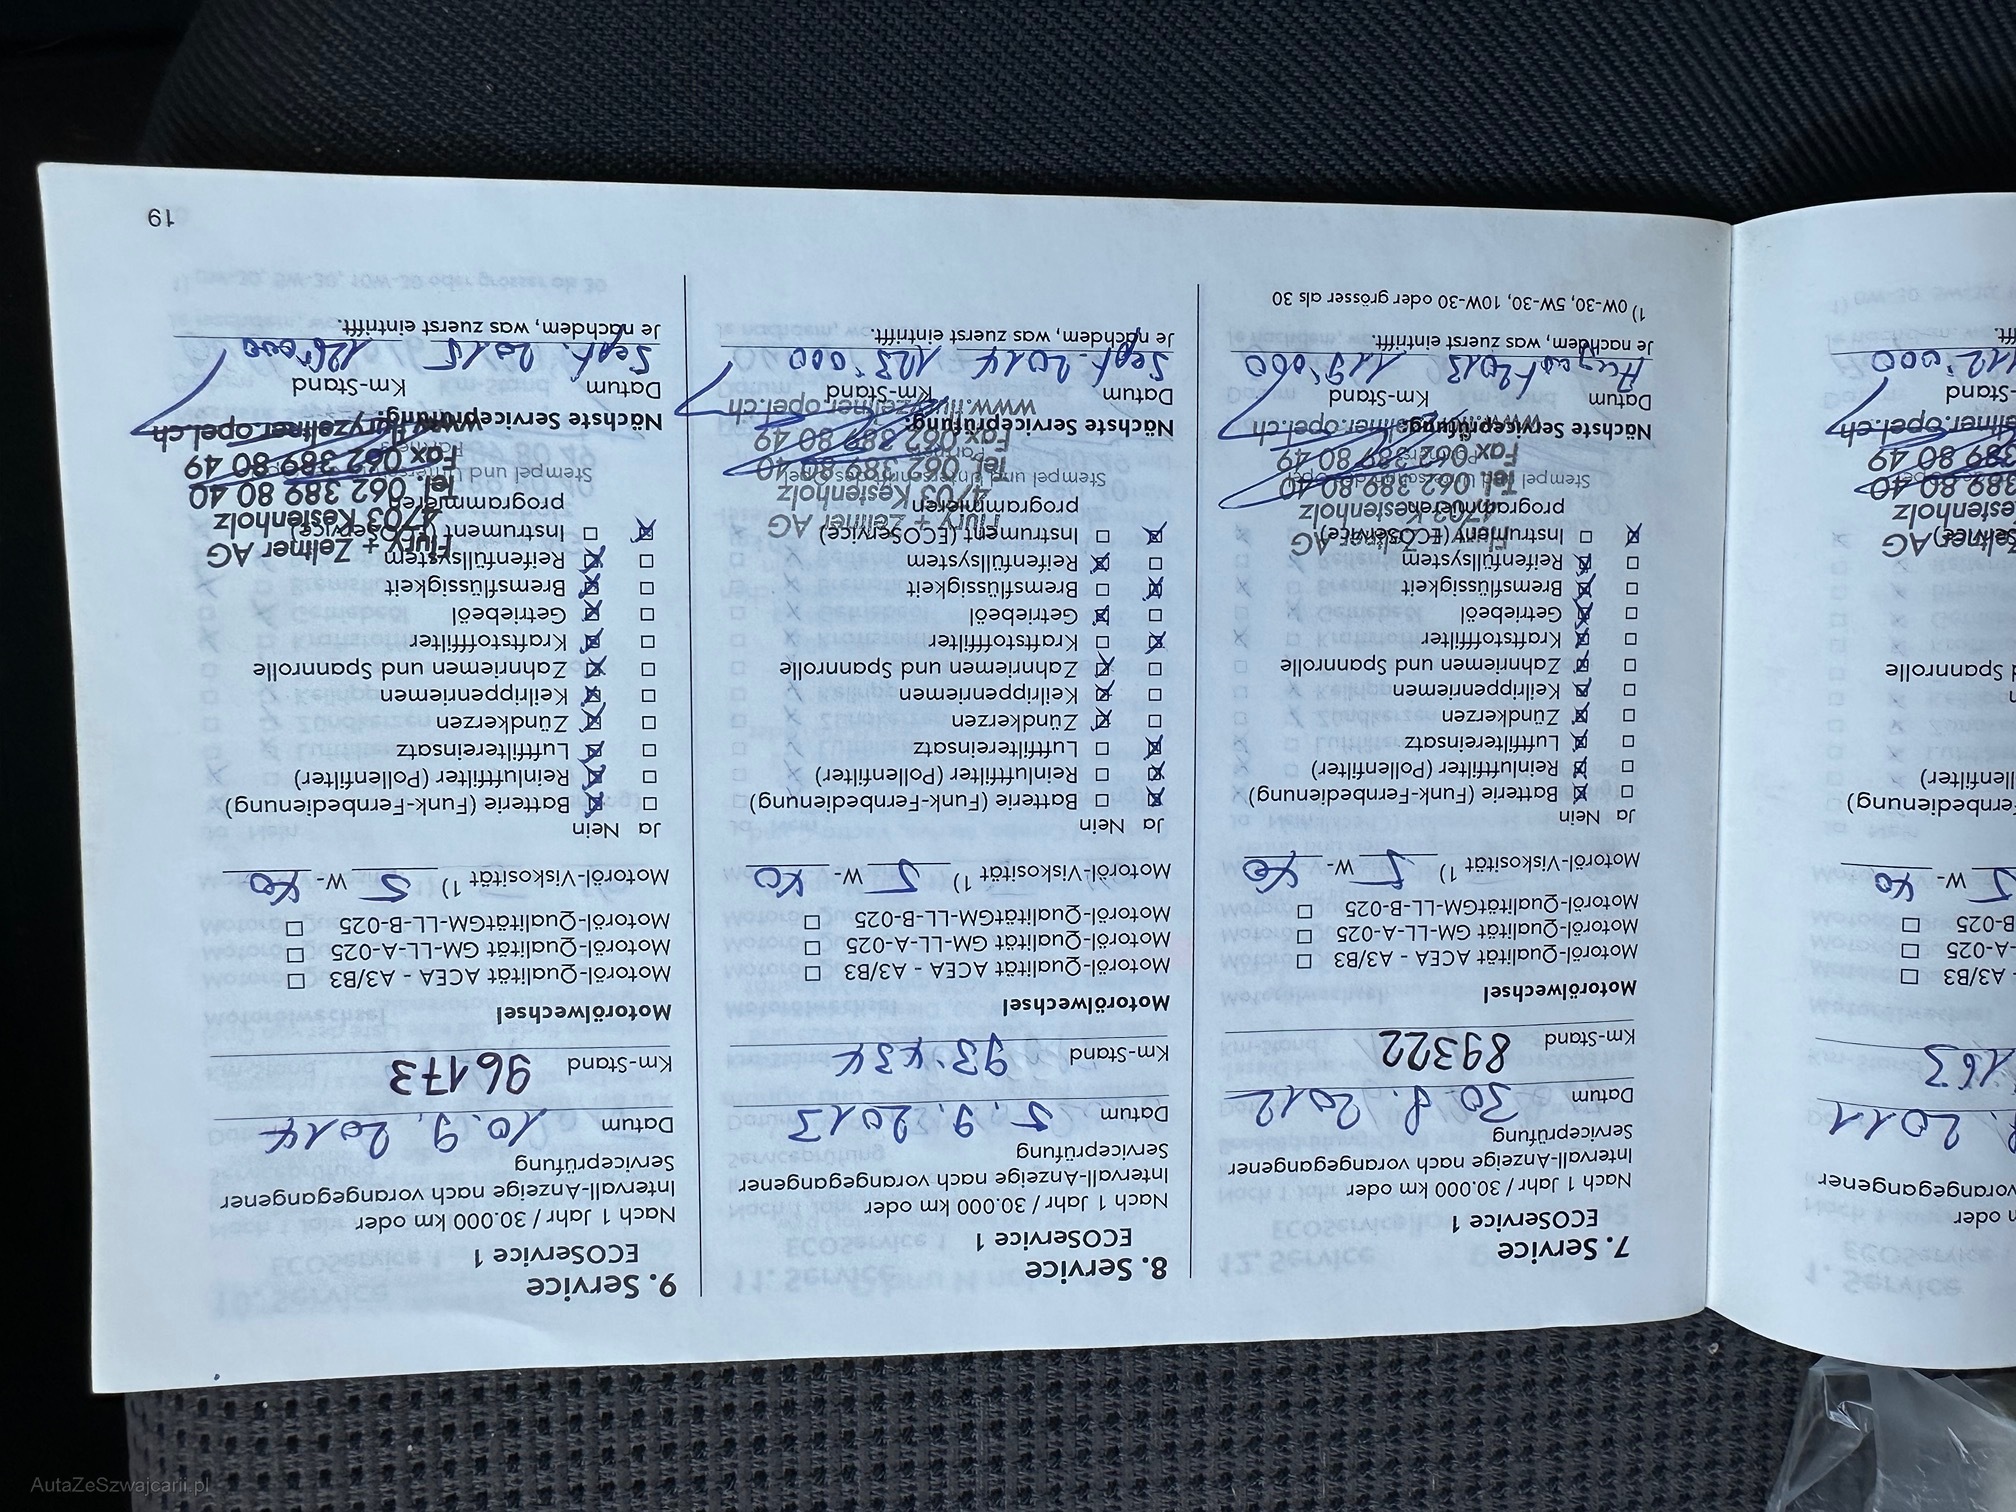 vorangegangener
2011
163
A3/B3 ☐
W- 40
112'000
7. Service
ECOService 1
Nach 1 Jahr / 30.000 km oder
Intervall-Anzeige nach vorangegangener
Serviceprüfung
Datum 30. 8. 2012
Km-Stand 89322
Motorölwechsel
Motoröl-Qualität ACEA - A3/B3 ☐
Motoröl-Qualität GM-LL-A-025 ☐
Motoröl-QualitätGM-LL-B-025 ☐
Motoröl-Viskosität 1) 5 W- 40
Ja Nein
☐ ☒ Batterie (Funk-Fernbedienung)
☐ ☒ Reinluftfilter (Pollenfilter)
☐ ☒ Luftfiltereinsatz
☐ ☒ Zündkerzen
☐ ☒ Keilrippenriemen
☐ ☒ Zahnriemen und Spannrolle
☐ ☒ Kraftstofffilter
☐ ☒ Getriebeöl
☐ ☒ Bremsflüssigkeit
☐ ☒ Reifenfüllsystem
☒ ☐ Instrument (ECOService)
programmieren
Zeltner AG
4703 Kestenholz
Tel. 062 389 80 40
Fax 062 389 80 49
Nächste Serviceprüfung:
Datum Km-Stand
August 2013 119'000
Je nachdem, was zuerst eintrifft.
1) 0W-30, 5W-30, 10W-30 oder grösser als 30
8. Service
ECOService 1
Nach 1 Jahr / 30.000 km oder
Intervall-Anzeige nach vorangegangener
Serviceprüfung
Datum 5. 9. 2013
Km-Stand 93.434
Motorölwechsel
Motoröl-Qualität ACEA - A3/B3 ☐
Motoröl-Qualität GM-LL-A-025 ☐
Motoröl-QualitätGM-LL-B-025 ☐
Motoröl-Viskosität 1) 5 W- 40
Ja Nein
☒ ☐ Batterie (Funk-Fernbedienung)
☒ ☐ Reinluftfilter (Pollenfilter)
☒ ☐ Luftfiltereinsatz
☐ ☒ Zündkerzen
☐ ☒ Keilrippenriemen
☐ ☒ Zahnriemen und Spannrolle
☒ ☐ Kraftstofffilter
☐ ☒ Getriebeöl
☒ ☐ Bremsflüssigkeit
☐ ☒ Reifenfüllsystem
☒ ☐ Instrument (ECOService)
programmieren
Flury + Zeltner AG
4703 Kestenholz
Stempel und Unterschrift des Opel
Partners
Tel. 062 389 80 40
Fax 062 389 80 49
www.fluryzeltner.opel.ch
Nächste Serviceprüfung:
Datum Km-Stand
Sept. 2014 123'000
Je nachdem, was zuerst eintrifft.
9. Service
ECOService 1
Nach 1 Jahr / 30.000 km oder
Intervall-Anzeige nach vorangegangener
Serviceprüfung
Datum 10. 9. 2014
Km-Stand 96173
Motorölwechsel
Motoröl-Qualität ACEA - A3/B3 ☐
Motoröl-Qualität GM-LL-A-025 ☐
Motoröl-QualitätGM-LL-B-025 ☐
Motoröl-Viskosität 1) 5 W- 40
Ja Nein
☐ ☒ Batterie (Funk-Fernbedienung)
☐ ☒ Reinluftfilter (Pollenfilter)
☐ ☒ Luftfiltereinsatz
☐ ☒ Zündkerzen
☐ ☒ Keilrippenriemen
☐ ☒ Zahnriemen und Spannrolle
☐ ☒ Kraftstofffilter
☐ ☒ Getriebeöl
☐ ☒ Bremsflüssigkeit
☐ ☒ Reifenfüllsystem
☒ ☐ Instrument (ECOService)
programmieren
Flury + Zeltner AG
4703 Kestenholz
Tel. 062 389 80 40
Fax 062 389 80 49
www.fluryzeltner.opel.ch
Nächste Serviceprüfung:
Datum Km-Stand
Sept. 2015 126'000
Je nachdem, was zuerst eintrifft.
19
AutaZeSzwajcarii.pl